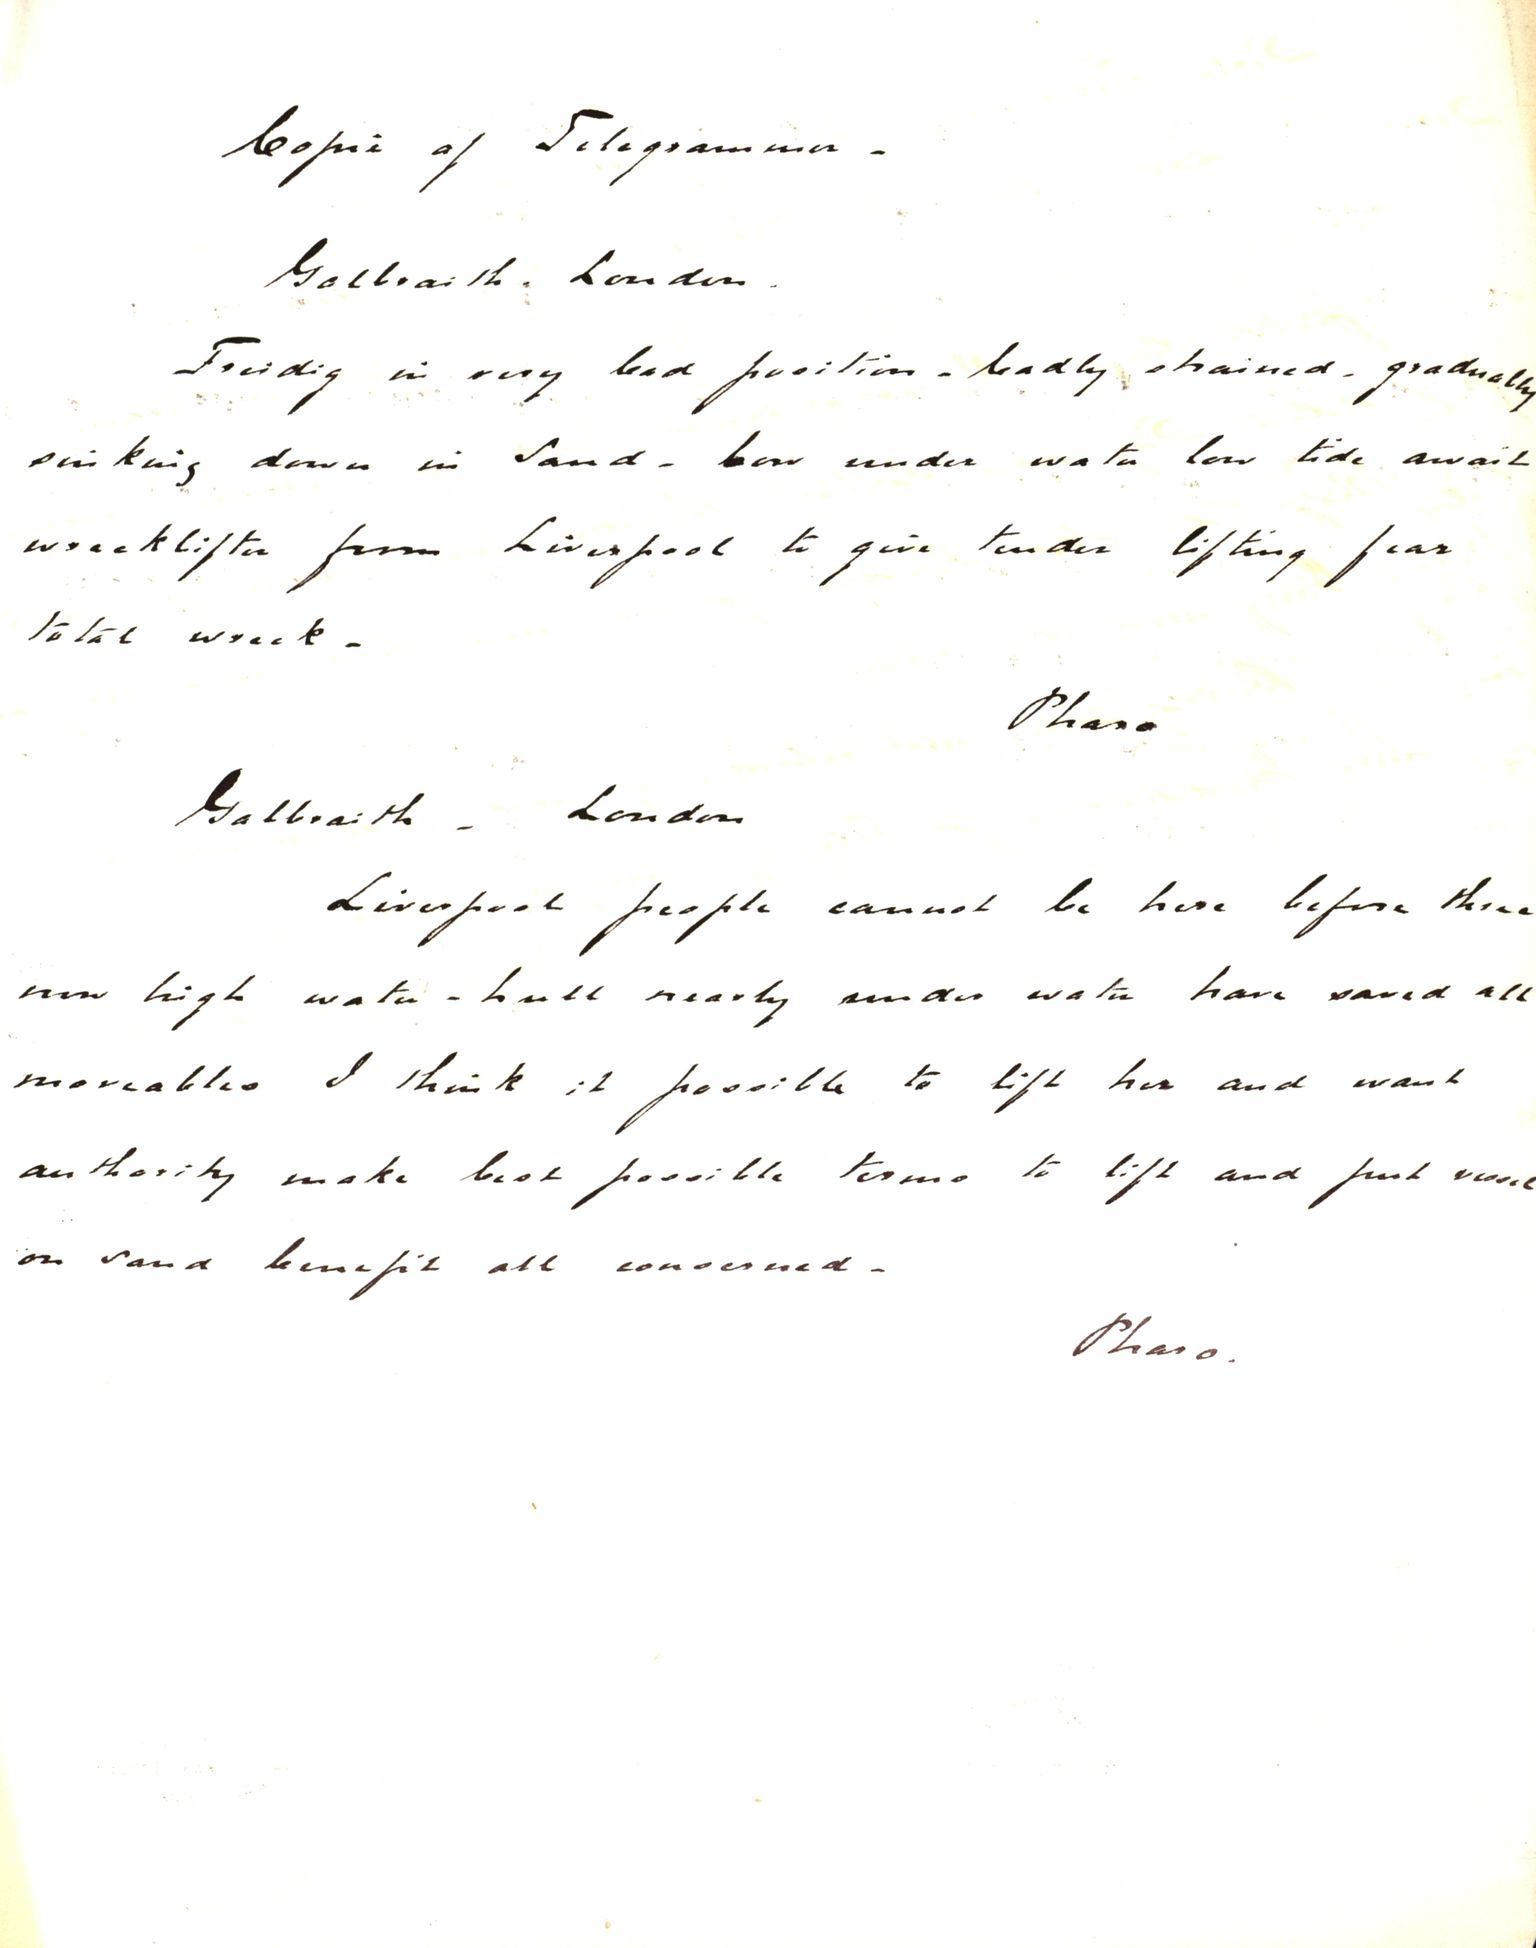 Copie af Telegrammer -
Galbraith. London.
Freidig in very bad position - badly strained - gradually
sinking down in Sand - bow under water low tide await
wrecklifter from Liverpool to give tender lifting fear
total wreck -
Pharo
Galbraith - London
Liverpool people cannot be here before three
now high water - hull nearly under water have saved all
moveables I think it possible to lift her and want
authority make best possible terms to lift and put vessel
on Sand benefit all concerned -
Pharo.